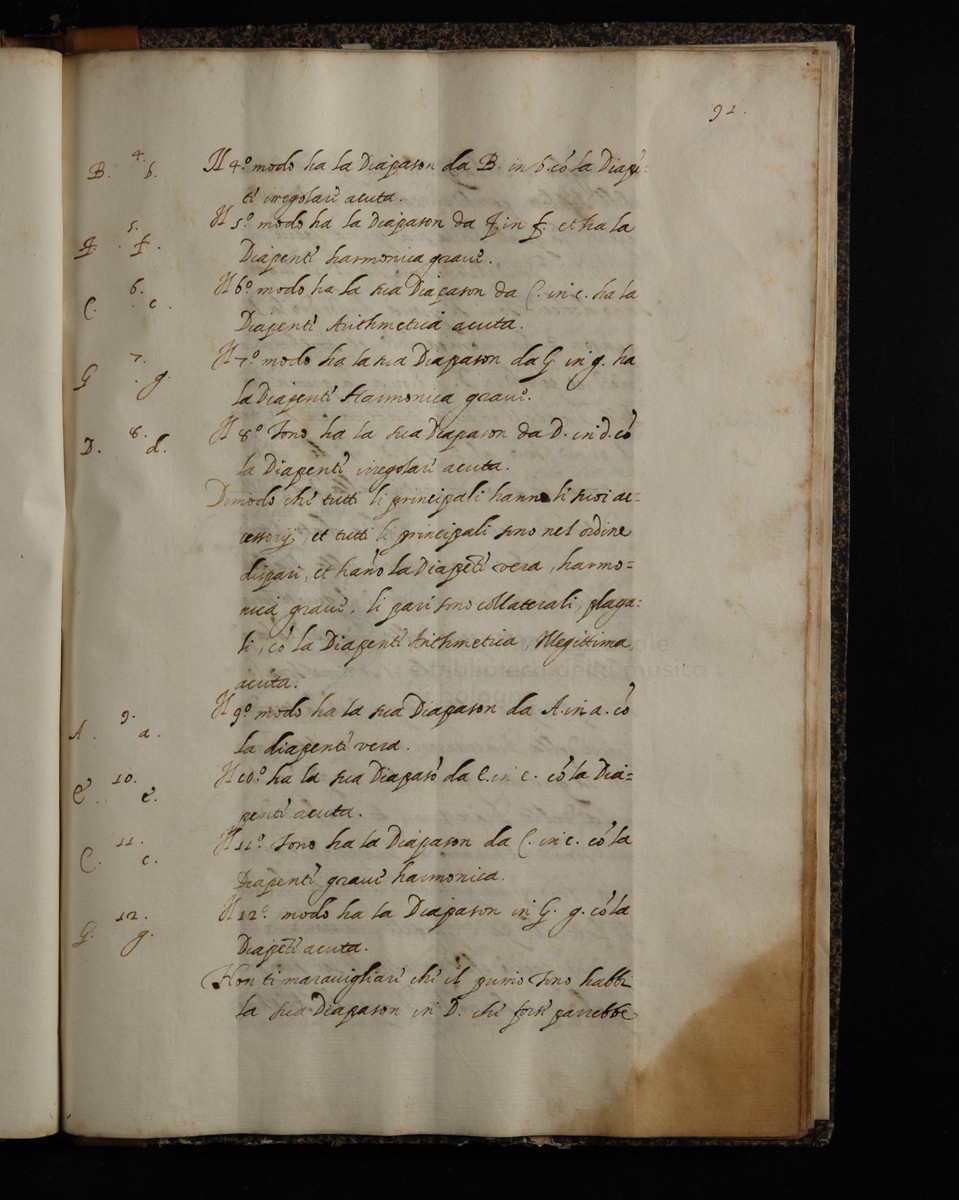 91.
4.
B. b. Il 4.º modo ha la Diapason da B. in b. cō la Diapē-
ti irregolari acuta.
5.
F. f. Il 5.º modo ha la Diapason da F. in f. et ha la
Diapenti harmonica gravi.
6.
C. c. Il 6.º modo ha la sua Diapason da C. in c. ha la
Diapenti Arithmetica acuta.
7.
G g. Il 7.º modo ha la sua Diapason da G in g. ha
la Diapenti Harmonica gravi.
8.
D. d. Il 8.º Tono ha la sua Diapason da D. in d. cō
la Diapenti irregolari acuta.
Dimodo chi tutti li principali hanno li suoi ac=
cessorij, et tutti li principali sono nel ordine
dispari, et hāno la Diapēti vera, harmo=
nica gravi, li pari sono collaterali, plaga=
li, cō la Diapenti Arithmetica, Illegittima,
acuta.
9.
A. a. Il 9.º modo ha la sua Diapason da A. in a. cō
la diapenti vera.
10.
E. e. Il 10.º ha la sua Diapasō da E. in e. cō la Dia=
penti acuta.
11.
C. c. Il 11.º Tono ha la Diapason da C. in c. cō la
Diapenti gravi harmonica.
12.
G. g. Il 12.º modo ha la Diapason in G. g. cō la
Diapēti acuta.
Non ti maravigliari chi il primo Tono habbi
la sua Diapason in D. chi forsi parrebbe
biblioteca della musica
bologna